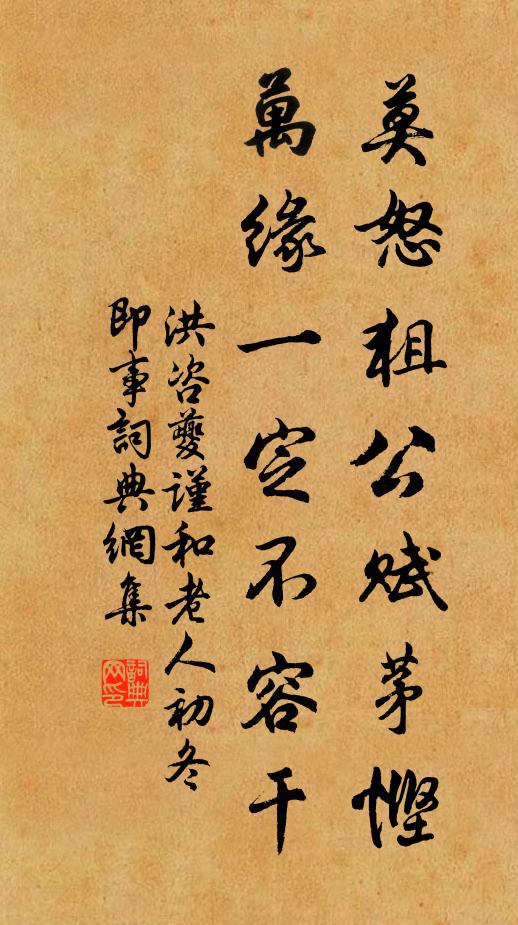 莫怒租公賦茅慳
萬緣一定不容干
洪咨夔謹和老人初冬
即事詞典網集
詞典网印